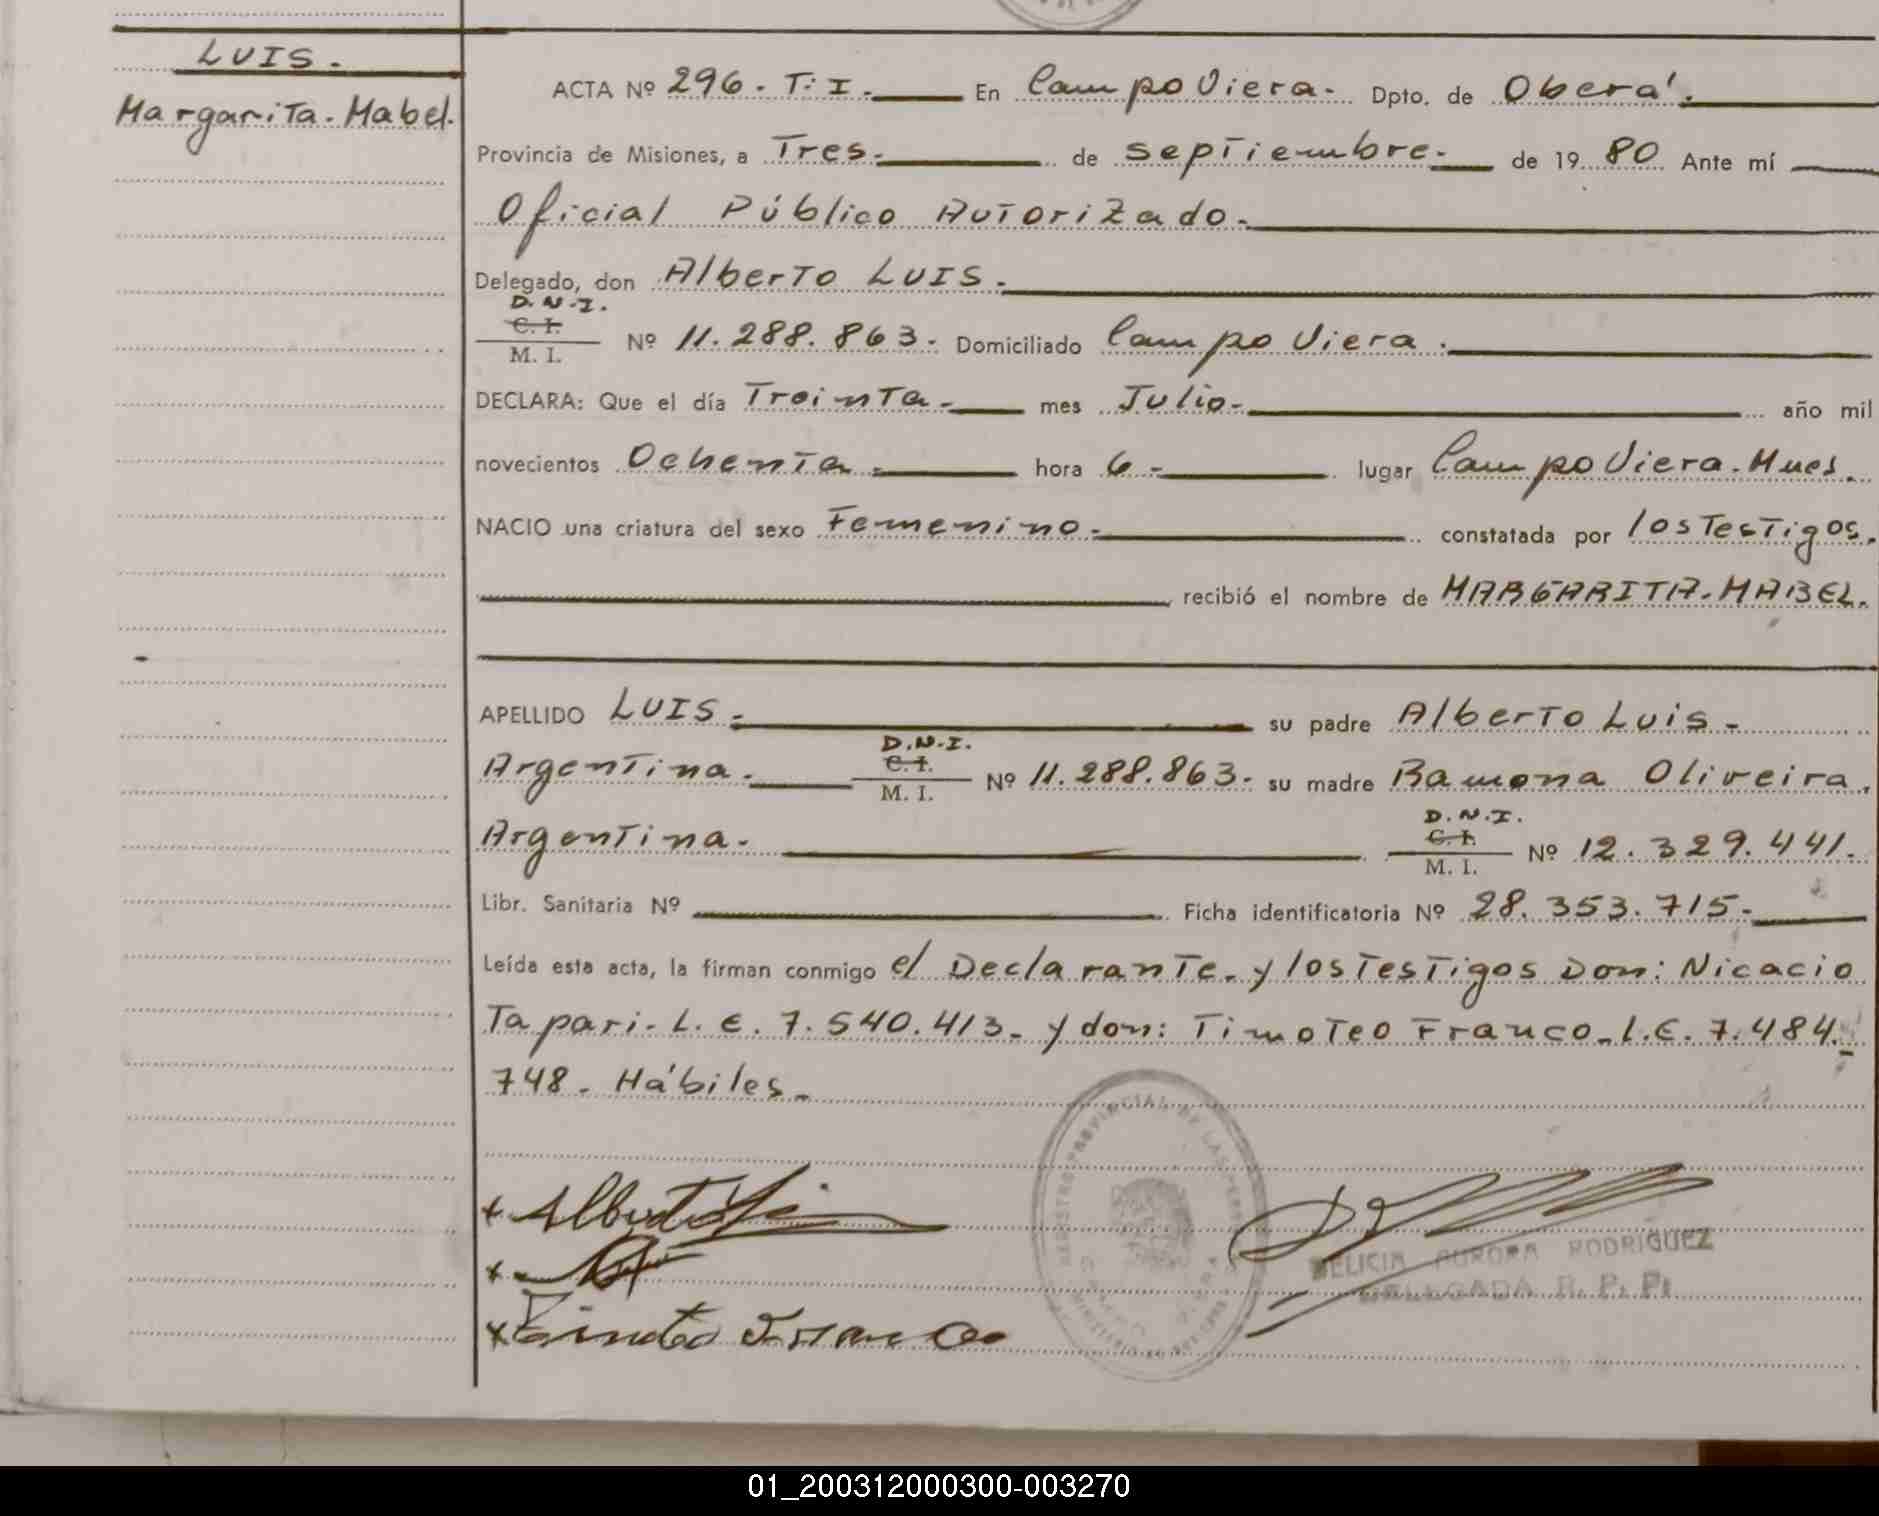 LUIS.
Margarita. Mabel.
ACTA Nº 296. T: I. En Campo Viera. Dpto. de Oberá.
Provincia de Misiones, a Tres. de septiembre. de 19 80 Ante mí
Oficial Público Autorizado.
Delegado, don Alberto LUIS.
D.N.I.
C. I.
M. I.
Nº 11.288.863. Domiciliado Campo Viera.
DECLARA: Que el día Treinta. mes Julio. año mil
novecientos Ochenta. hora 6. lugar Campo Viera. Mnes.
NACIO una criatura del sexo Femenino. constatada por los Testigos.
recibió el nombre de MARGARITA. MABEL.
APELLIDO LUIS. su padre Alberto Luis.
D.N.I.
C. I.
M. I.
Argentina. Nº 11.288.863. su madre Ramona Oliveira.
D.N.I.
C. I.
M. I.
Argentina. Nº 12.329.441.
Libr. Sanitaria Nº Ficha identificatoria Nº 28.353.715.
Leída esta acta, la firman conmigo el Declarante. y los Testigos Don: Nicacio
Tapari. L.E. 7.540.413. y don: Timoteo Franco. L.E. 7.484.
748. Hábiles.
REGISTRO PROVINCIAL DE LAS PERSONAS
DELICIA AURORA RODRIGUEZ
DELEGADA R. P. P.
01_200312000300-003270